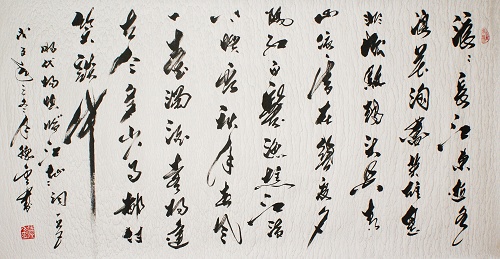 滚滚長江東逝水
浪花淘盡英雄是
非成敗轉頭空青
山依舊在幾度夕
陽紅白髮漁樵江渚
上慣看秋月春風
一壺濁酒喜相逢
古今多少事都付
笑談中
明代楊慎臨江仙詞一首
戊子